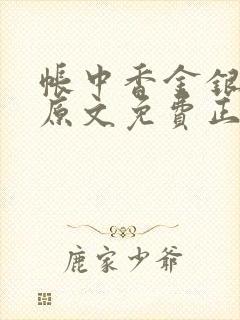 帳中香金銀
原文免費正
鹿家少爺